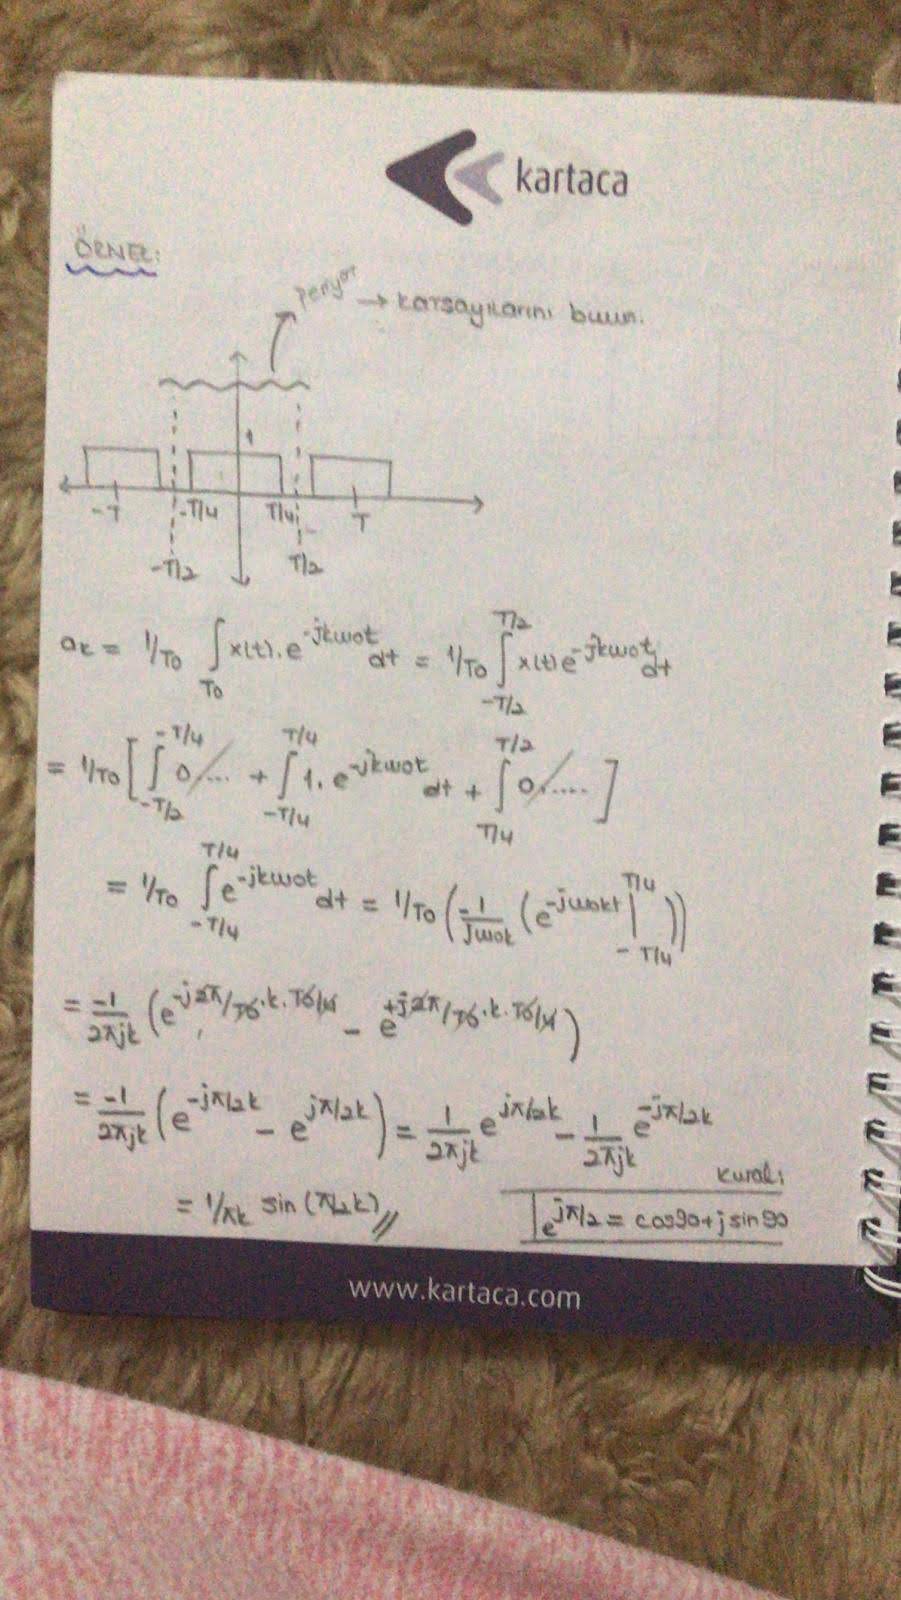 kartaca
ÖRNEK:
periyot → katsayılarını bulun.
1
-T -T/4 T/4 T
-T/2 T/2
ak = 1/T0 ∫T0 x(t).e^-jkw0t dt = 1/T0 ∫-T/2^T/2 x(t)e^-jkw0t dt
= 1/T0 [∫-T/2^-T/4 0/... + ∫-T/4^T/4 1.e^-jkw0t dt + ∫T/4^T/2 0/.....]
= 1/T0 ∫-T/4^T/4 e^-jkw0t dt = 1/T0 (-1/jw0k (e^-jw0kt |-T/4^T/4))
= -1/2πjk (e^-j2π/T0.k.T0/4 - e^+j2π/T0.k.T0/4)
= -1/2πjk (e^-jπ/2k - e^jπ/2k) = 1/2πjk e^jπ/2k - 1/2πjk e^-jπ/2k
Kural:
= 1/πk sin(π/2k)//
e^jπ/2 = cos90+jsin90
www.kartaca.com